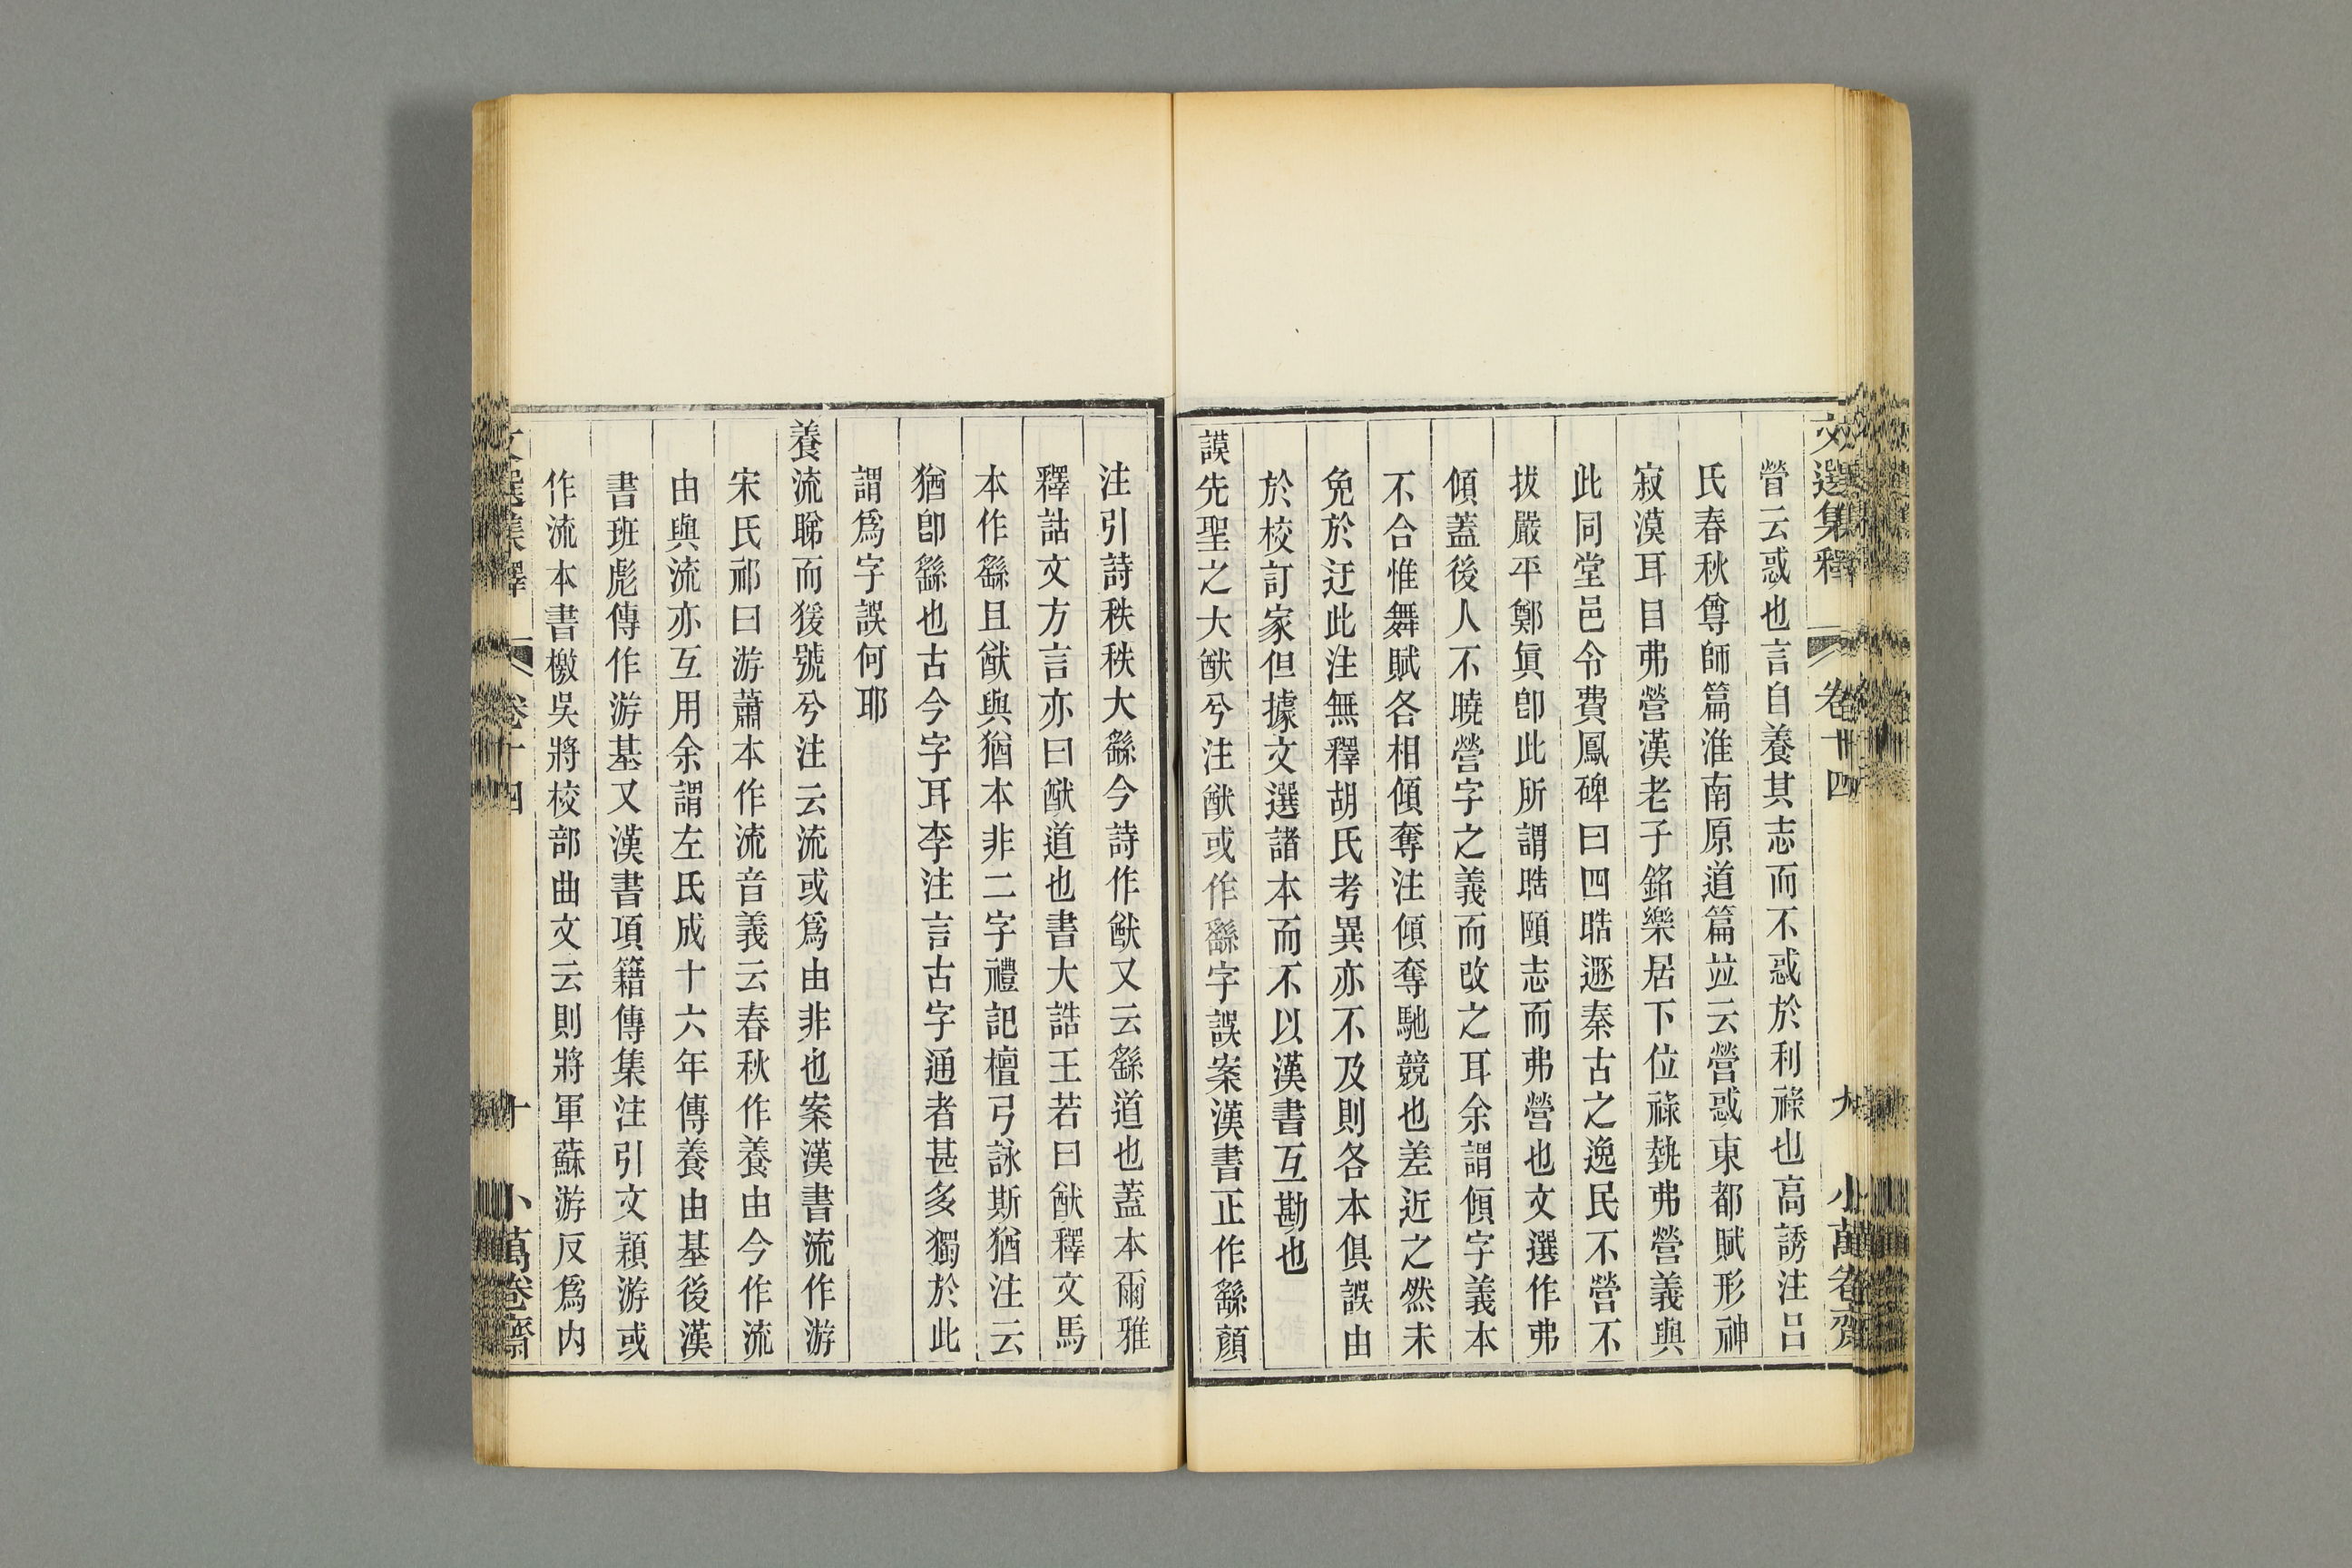 文選集釋 卷十四 九 小萬卷齋
營云惑也言自養其志而不惑於利祿也高誘注呂
氏春秋尊師篇淮南原道篇竝云營惑東都賦形神
寂漠耳目弗營漢老子銘樂居下位祿埶弗營義與
此同堂邑令費鳳碑曰四晧遯秦古之逸民不營不
拔嚴平鄭眞卽此所謂晧頤志而弗營也文選作弗
傾蓋後人不曉營字之義而改之耳余謂傾字義本
不合惟舞賦各相傾奪注傾奪馳競也差近之然未
免於迂此注無釋胡氏考異亦不及則各本俱誤由
於校訂家但據文選諸本而不以漢書互勘也
謨先聖之大猷兮注猷或作繇字誤案漢書正作繇顏
注引詩秩秩大繇今詩作猷又云繇道也蓋本爾雅
釋詁文方言亦曰猷道也書大誥王若曰猷釋文馬
本作繇且猷與猶本非二字禮記檀弓詠斯猶注云
猶卽繇也古今字耳李注言古字通者甚多獨於此
謂爲字誤何耶
養流睇而猨號兮注云流或爲由非也案漢書流作游
宋氏祁曰游蕭本作流音義云春秋作養由今作流
由與流亦互用余謂左氏成十六年傳養由基後漢
書班彪傳作游基又漢書項籍傳集注引文穎游或
作流本書檄吳將校部曲文云則將軍蘇游反爲內
文選集釋 卷十四 十 小萬卷齋